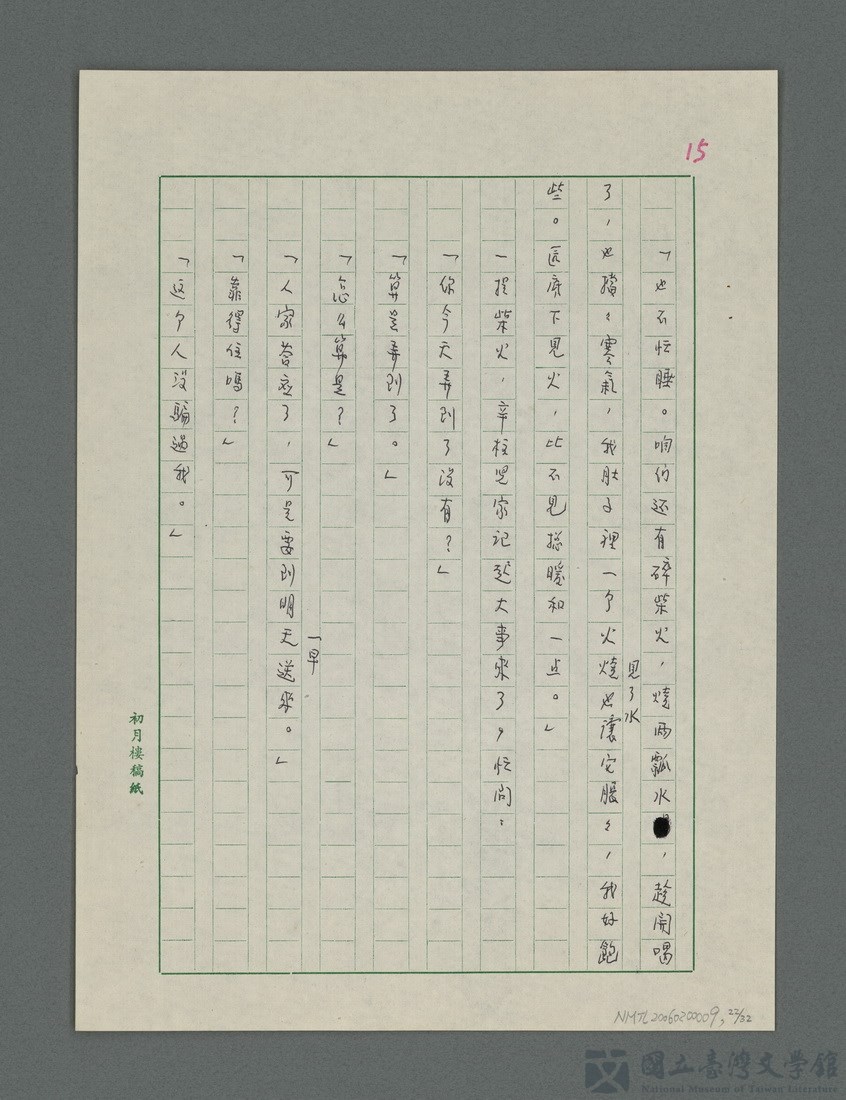 15
「也不忙睡。咱们还有碎柴火，燒两瓢水，趁開喝
了，也擋々寒氣，我肚子裡一个火燒見了水也讓它脹々，我好飽
些。匟底下見火，比不見総暖和一点。」
一提柴火，辛柱児家记起大事來了，忙问：
「你今天弄到了没有？」
「算是弄到了。」
「怎么算是？」
「人家荅應了，可是要到明天一早送來。」
「靠得住嗎？」
「这个人没騙過我。」
初月樓稿紙
NMTL20060200009, 22/32
國立臺灣文學館
National Museum of Taiwan Literature